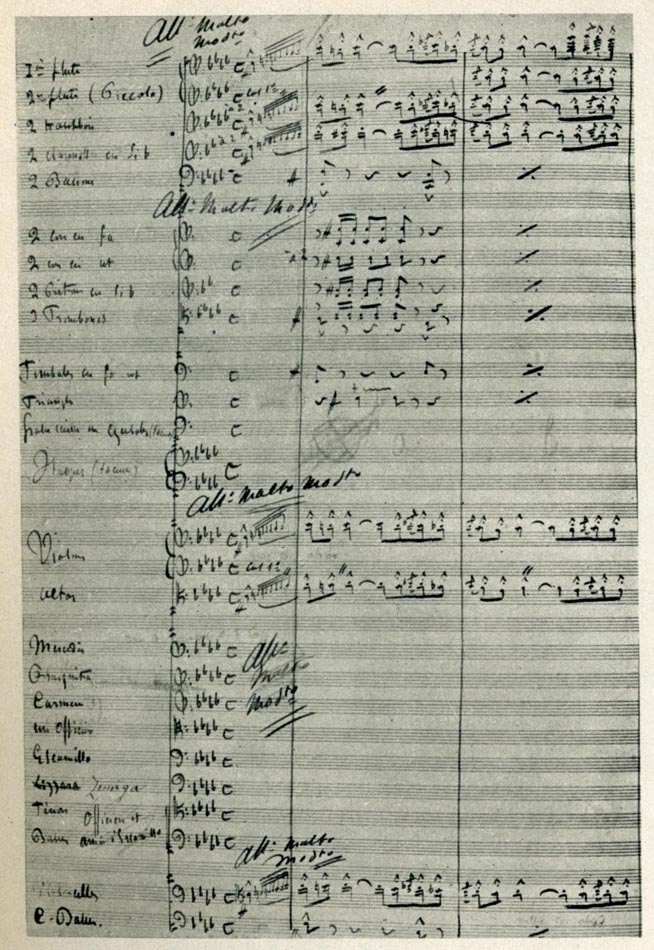 Allo Molto
modto
1re flute
2e flute (Piccolo)
2 Hautbois
2 en sib
2 Bassons
Allo Molto Modto
2 cors en fa
2 cors en ut
2 Pistons en sib
3 Trombones
Timbales en fa ut
Triangle
Harpes (tacent)
Allo Molto Modto
Violons
altos
Mercédès
Frasquita
Carmen
un Officier
Escamillo
Zuniga
Tenors
Officiers et
Basses
Allo
Molto
Modto
Allo Molto
modto
Violoncelles
C. Basses.